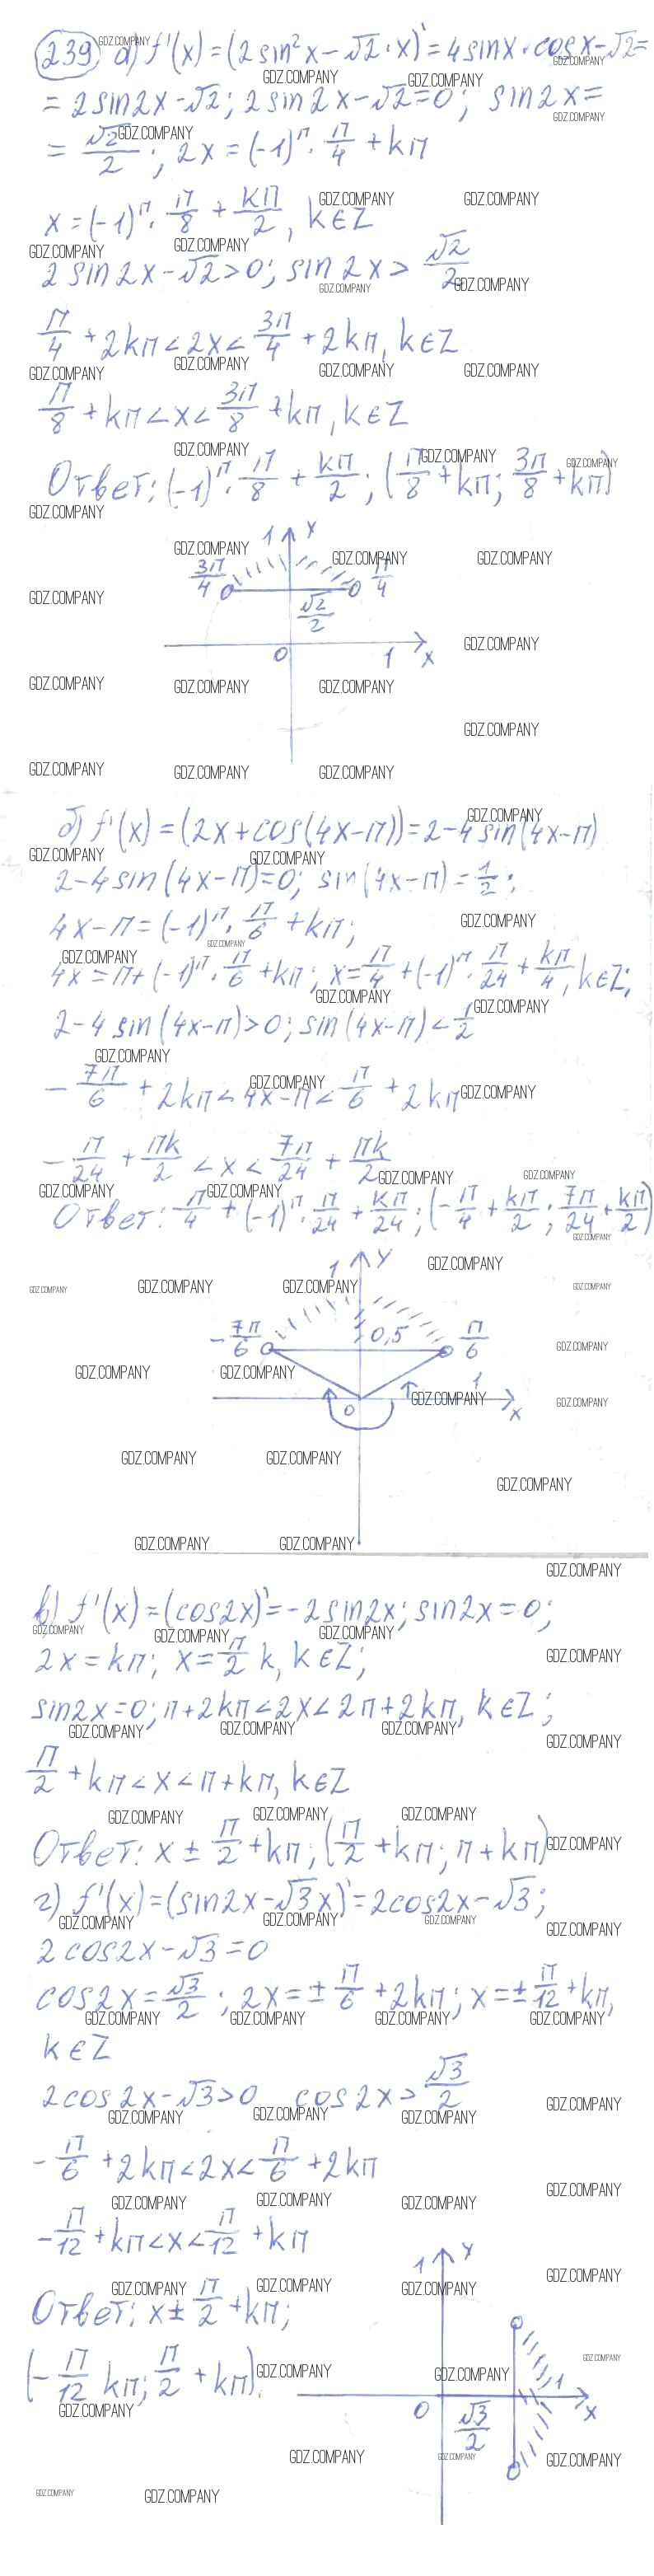 239 а) f'(x) = (2 sin²x - √2 · x)' = 4 sin x · cos x - √2 =
= 2 sin 2x - √2; 2 sin 2x - √2 = 0; sin 2x =
= √2/2; 2x = (-1)ⁿ · π/4 + kπ
x = (-1)ⁿ · π/8 + kπ/2, k∈Z
2 sin 2x - √2 > 0; sin 2x > √2/2
π/4 + 2kπ < 2x < 3π/4 + 2kπ, k∈Z
π/8 + kπ < x < 3π/8 + kπ, k∈Z
Ответ: (-1)ⁿ · π/8 + kπ/2; (π/8 + kπ; 3π/8 + kπ)
1 y
3π/4 π/4
√2/2
0 1 x
б) f'(x) = (2x + cos(4x-π)) = 2 - 4 sin(4x-π)
2 - 4 sin(4x-π) = 0; sin(4x-π) = 1/2;
4x - π = (-1)ⁿ · π/6 + kπ;
4x = π + (-1)ⁿ · π/6 + kπ; x = π/4 + (-1)ⁿ · π/24 + kπ/4, k∈Z;
2 - 4 sin(4x-π) > 0; sin(4x-π) < 1/2
- 7π/6 + 2kπ < 4x - π < π/6 + 2kπ
- π/24 + πk/2 < x < 7π/24 + πk/2
Ответ: π/4 + (-1)ⁿ · π/24 + kπ/24; (-π/4 + kπ/2; 7π/24 + kπ/2)
1 y
- 7π/6 0,5 π/6
0 1 x
в) f'(x) = (cos 2x)' = -2 sin 2x; sin 2x = 0;
2x = kπ; x = π/2 k, k∈Z;
sin 2x = 0; π + 2kπ < 2x < 2π + 2kπ, k∈Z;
π/2 + kπ < x < π + kπ, k∈Z
Ответ: x ± π/2 + kπ; (π/2 + kπ; π + kπ)
г) f'(x) = (sin 2x - √3x)' = 2cos 2x - √3;
2 cos 2x - √3 = 0
cos 2x = √3/2; 2x = ± π/6 + 2kπ; x = ± π/12 + kπ,
k∈Z
2cos 2x - √3 > 0 cos 2x > √3/2
- π/6 + 2kπ < 2x < π/6 + 2kπ
- π/12 + kπ < x < π/12 + kπ
Ответ: x ± π/2 + kπ;
(- π/12 kπ; π/2 + kπ).
1 y
0 √3/2 1 x
GDZ.COMPANY